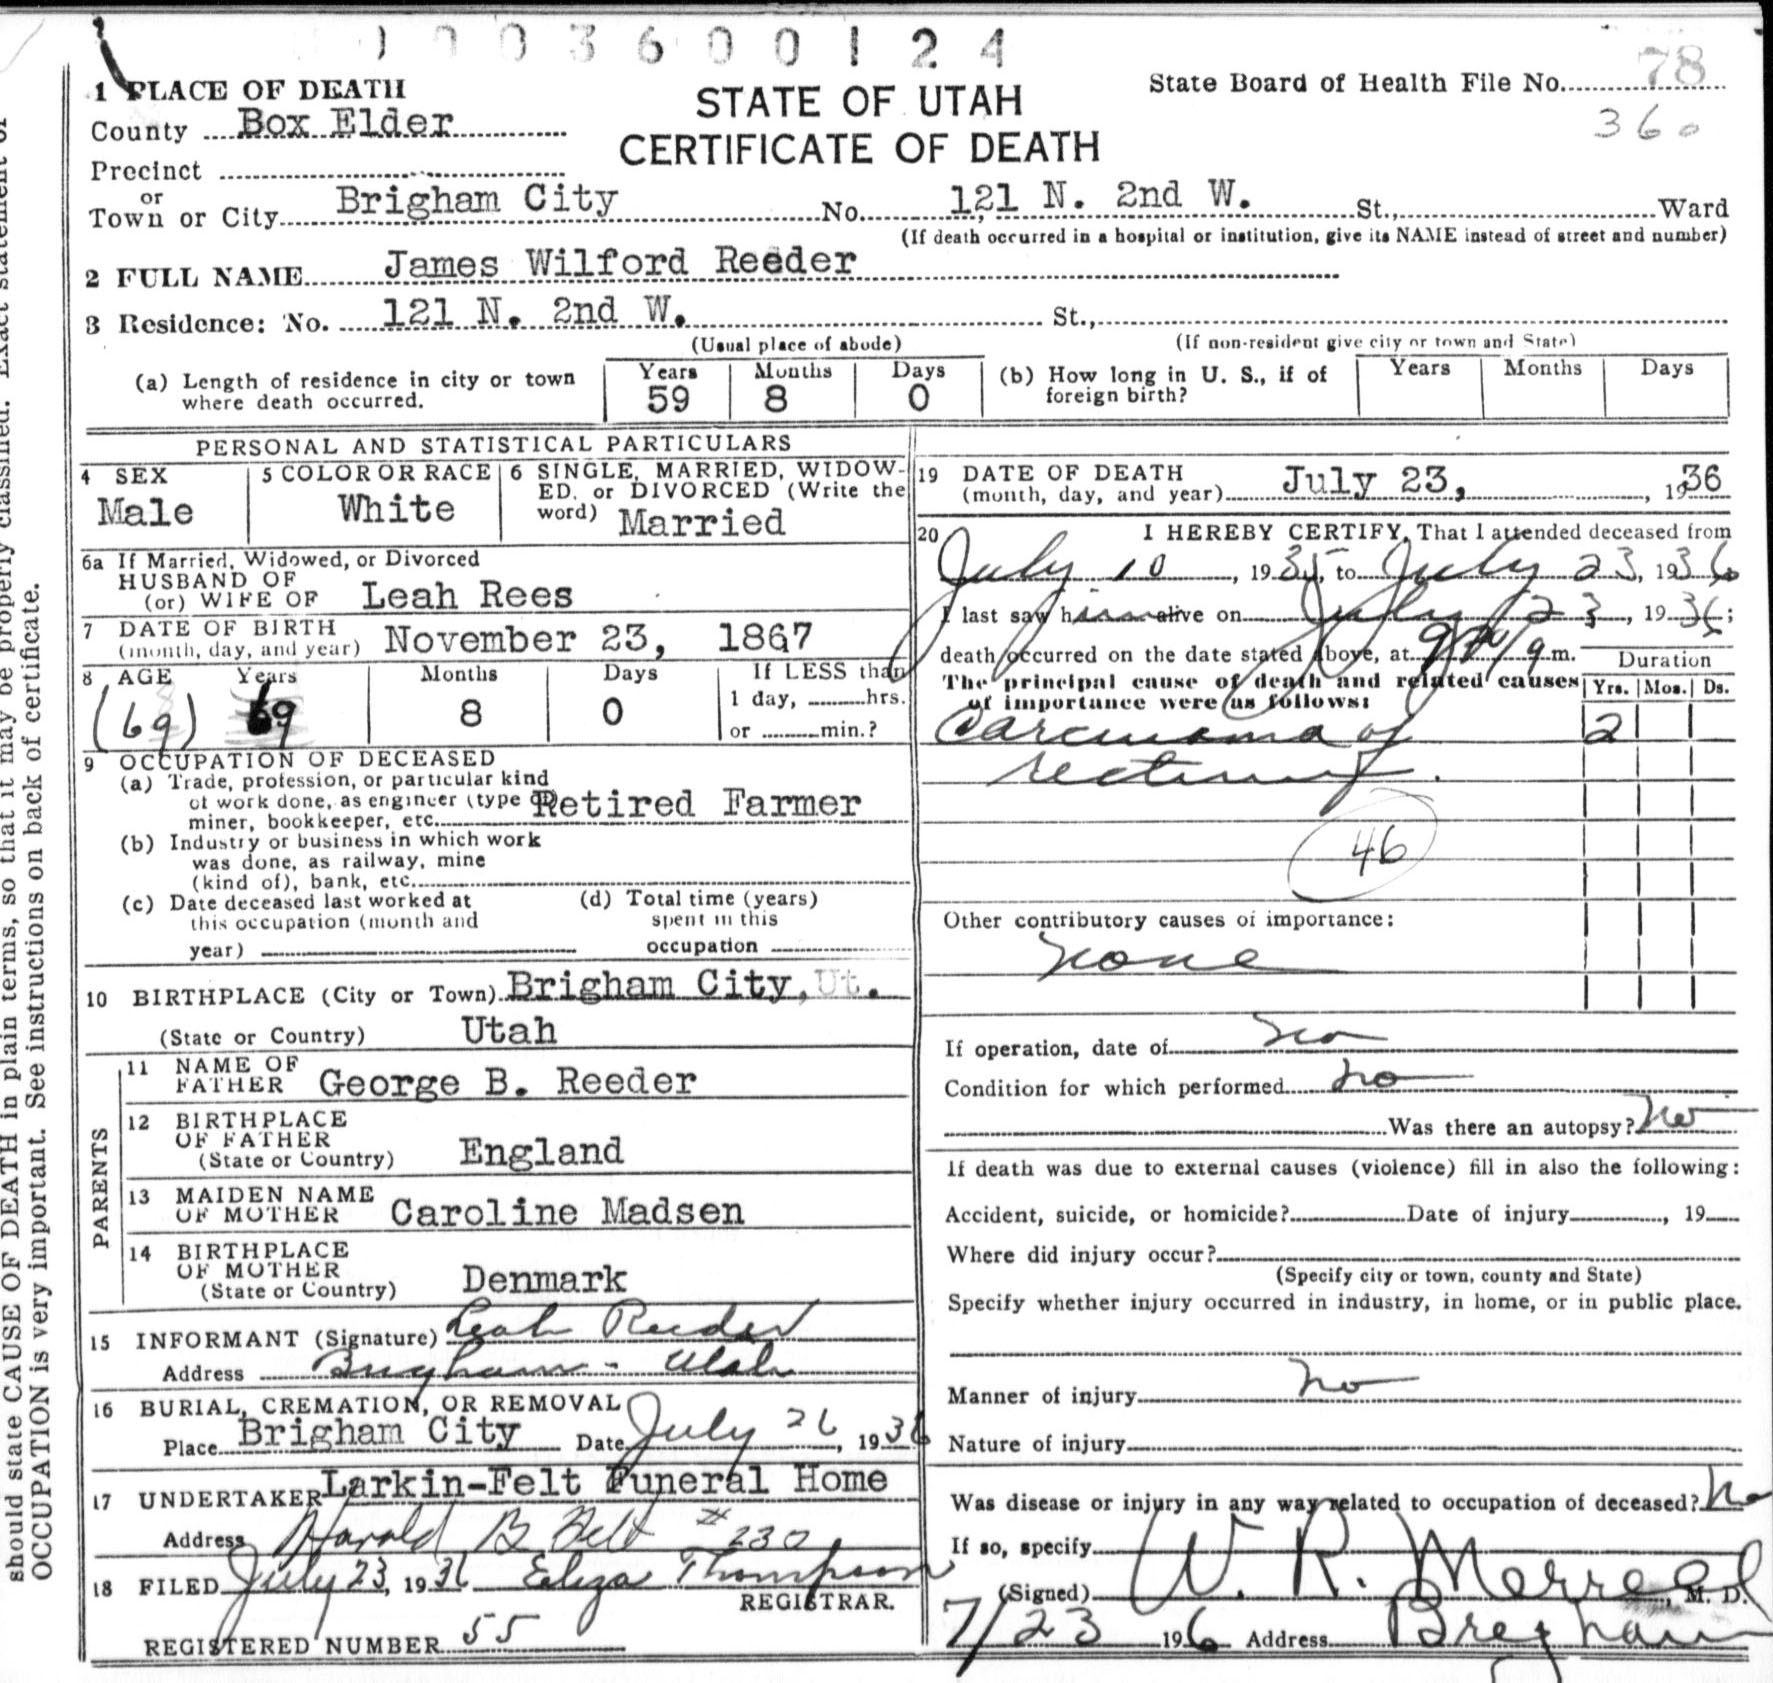 0 0 0 3 6 0 0 1 2 4
1 PLACE OF DEATH
STATE OF UTAH
CERTIFICATE OF DEATH
State Board of Health File No. 78
360
County Box Elder
Precinct
or
Town or City Brigham City No. 121 N. 2nd W. St., Ward
(If death occurred in a hospital or institution, give its NAME instead of street and number)
2 FULL NAME James Wilford Reeder
3 Residence: No. 121 N. 2nd W. St.,
(Usual place of abode) (If non-resident give city or town and State)
(a) Length of residence in city or town where death occurred. Years 59 Months 8 Days 0
(b) How long in U. S., if of foreign birth? Years Months Days
PERSONAL AND STATISTICAL PARTICULARS
4 SEX
Male
5 COLOR OR RACE
White
6 SINGLE, MARRIED, WIDOW-
ED, or DIVORCED (Write the
word) Married
6a If Married, Widowed, or Divorced
HUSBAND OF
(or) WIFE OF Leah Rees
7 DATE OF BIRTH
(month, day, and year) November 23, 1867
8 AGE Years Months Days If LESS than
(69) 69 8 0 1 day, hrs.
or min.?
9 OCCUPATION OF DECEASED
(a) Trade, profession, or particular kind
of work done, as engineer (type of
miner, bookkeeper, etc. Retired Farmer
(b) Industry or business in which work
was done, as railway, mine
(kind of), bank, etc.
(c) Date deceased last worked at
this occupation (month and
year)
(d) Total time (years)
spent in this
occupation
10 BIRTHPLACE (City or Town) Brigham City, Ut.
(State or Country) Utah
PARENTS
11 NAME OF
FATHER George B. Reeder
12 BIRTHPLACE
OF FATHER
(State or Country) England
13 MAIDEN NAME
OF MOTHER Caroline Madsen
14 BIRTHPLACE
OF MOTHER
(State or Country) Denmark
15 INFORMANT (Signature) Leah Reeder
Address Brigham - Utah
16 BURIAL, CREMATION, OR REMOVAL
Place Brigham City Date July 26, 1936
17 UNDERTAKER Larkin-Felt Funeral Home
Address Harold B Felt # 230
18 FILED July 23, 1936 Eliza Thompson
REGISTRAR.
REGISTERED NUMBER 55
19 DATE OF DEATH
(month, day, and year) July 23, 1936
20 I HEREBY CERTIFY, That I attended deceased from
July 10, 1935, to July 23, 1936
I last saw him alive on July 23, 1936;
death occurred on the date stated above, at m.
Duration
The principal cause of death and related causes
of importance were as follows:
Yrs. Mos. Ds.
Carcinoma of 2
rectum.
46
Other contributory causes of importance:
none
If operation, date of no
Condition for which performed no
Was there an autopsy? no
If death was due to external causes (violence) fill in also the following:
Accident, suicide, or homicide? Date of injury , 19
Where did injury occur?
(Specify city or town, county and State)
Specify whether injury occurred in industry, in home, or in public place.
Manner of injury no
Nature of injury
Was disease or injury in any way related to occupation of deceased? no
If so, specify
(Signed) W. R. Merrell, M. D.
7/23 1936 Address Brigham
should state CAUSE OF DEATH in plain terms, so that it may be properly classified. Exact statement of
OCCUPATION is very important. See instructions on back of certificate.